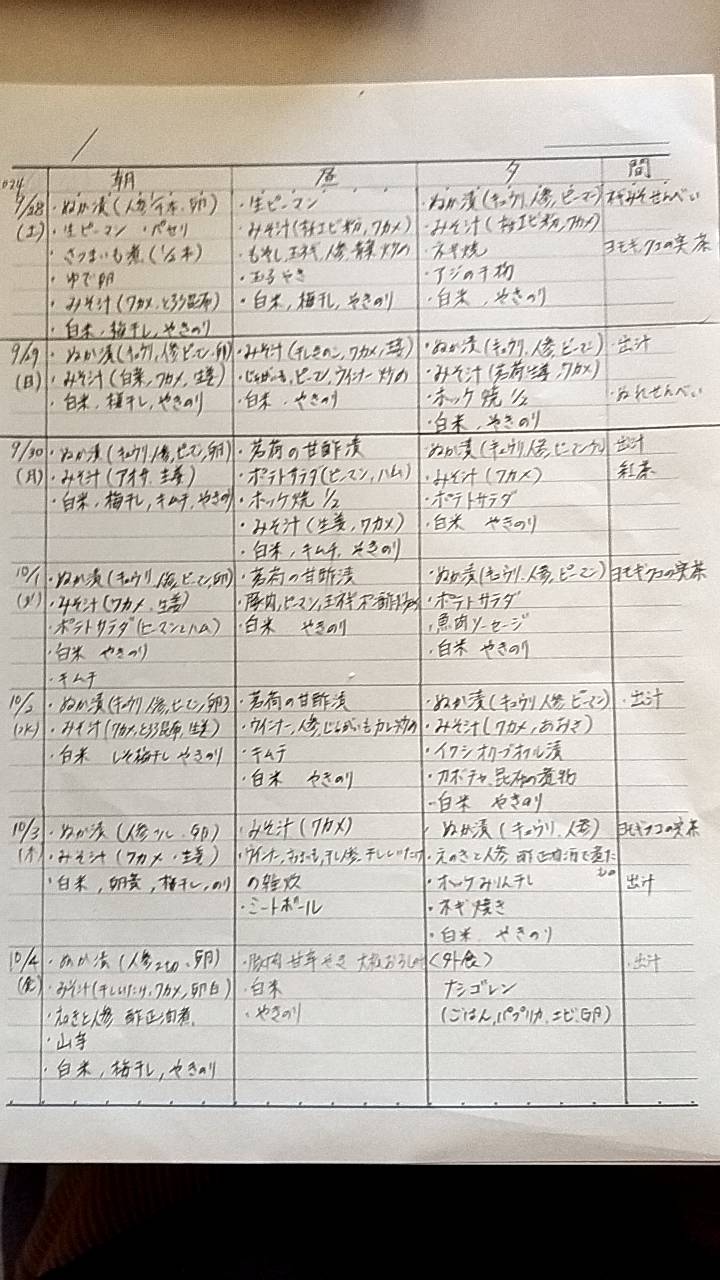 朝 昼 夕 間
2024
9/28
(土)
・ぬか漬(人参1/4本、卵)
・生ピーマン ・パセリ
・さつまいも煮(1/2本)
・ゆで卵
・みそ汁(ワカメ、とろろ昆布)
・白米、梅干し、やきのり
・生ピーマン
・みそ汁(桜エビ粉、ワカメ)
・もやし、玉ネギ、人参、青菜 炒め
・玉子やき
・白米、梅干し、やきのり
・ぬか漬(キュウリ、人参、ピーマン)
・みそ汁(桜エビ粉、ワカメ)
・ネギ焼
・アジの干物
・白米、やきのり
みそせんべい
ヨモギ、クコの実 茶
9/29
(日)
・ぬか漬(キュウリ、人参、ピーマン、卵)
・みそ汁(白菜、ワカメ、生姜)
・白米、梅干し、やきのり
・みそ汁(干しきのこ、ワカメ、生姜)
・じゃがいも、ピーマン、ウインナー炒め
・白米、やきのり
・ぬか漬(キュウリ、人参、ピーマン)
・みそ汁(茗荷、生姜、ワカメ)
・ホッケ焼 1/2
・白米、やきのり
・出汁
・ぬれせんべい
9/30
(月)
・ぬか漬(キュウリ、人参、ピーマン、卵)
・みそ汁(アオサ、生姜)
・白米、梅干し、キムチ、やきのり
・茗荷の甘酢漬
・ポテトサラダ(ピーマン、ハム)
・ホッケ焼 1/2
・みそ汁(生姜、ワカメ)
・白米、キムチ、やきのり
・ぬか漬(キュウリ、人参、ピーマン)
・みそ汁(ワカメ)
・ポテトサラダ
・白米 やきのり
出汁
紅茶
10/1
(火)
・ぬか漬(キュウリ、人参、ピーマン、卵)
・みそ汁(ワカメ、生姜)
・ポテトサラダ(ピーマンとハム)
・白米 やきのり
・キムチ
・茗荷の甘酢漬
・豚肉、ピーマン、玉ネギ 酢炒め
・白米 やきのり
・ぬか漬(キュウリ、人参、ピーマン)
・ポテトサラダ
・魚肉ソーセージ
・白米 やきのり
ヨモギクコの実茶
10/2
(水)
・ぬか漬(キュウリ、人参、ピーマン、卵)
・みそ汁(ワカメ、とろろ昆布、生姜)
・白米 しそ梅干し やきのり
・茗荷の甘酢漬
・ウインナー、人参、じゃがいもカレー炒め
・キムチ
・白米 やきのり
・ぬか漬(キュウリ、人参、ピーマン)
・みそ汁(ワカメ、あおさ)
・イワシオリーブオイル漬
・カボチャ、昆布の煮物
・白米 やきのり
・出汁
10/3
(木)
・ぬか漬(人参、卵)
・みそ汁(ワカメ・生姜)
・白米、卵黄、梅干し、のり
・みそ汁(ワカメ)
・ウインナー、干し人参、干ししいたけ
の雑炊
・ミートボール
・ぬか漬(キュウリ、人参)
・えのきと人参 酢正油で煮た
もの
・ホッケみりん干し
・ネギ焼き
・白米、やきのり
ヨモギクコの実茶
出汁
10/4
(金)
・ぬか漬(人参、卵)
・みそ汁(干ししいたけ、ワカメ、卵白)
・えのきと人参 酢正油煮
・山芋
・白米、梅干し、やきのり
・豚肉 甘辛やき 大根おろし
・白米
・やきのり
〈外食〉
ナシゴレン
(ごはん、パプリカ、エビ、卵)
・出汁